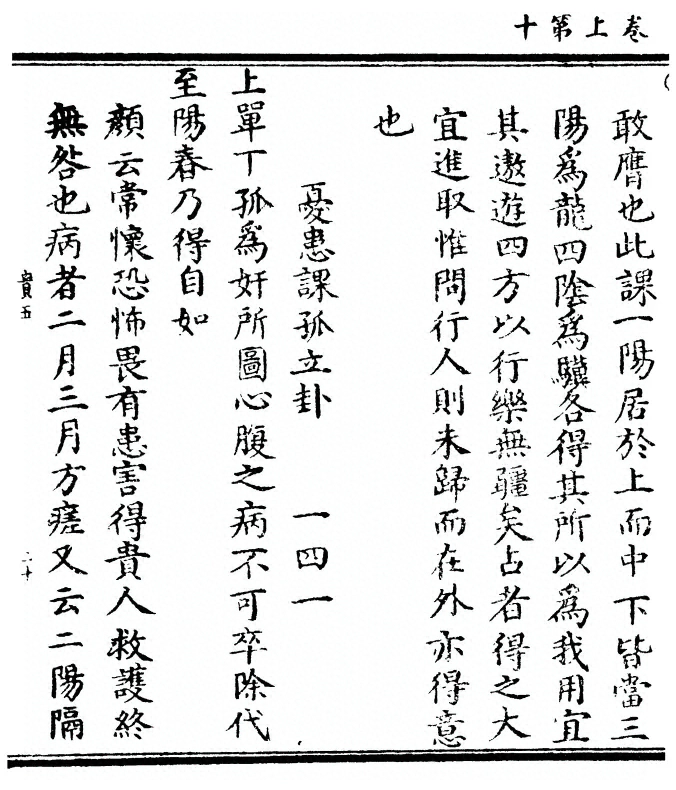 卷上第十
敢膺也此課一陽居於上而中下皆當三
陽爲龍四陰爲驥各得其所以爲我用宜
其遨遊四方以行樂無疆矣占者得之大
宜進取惟問行人則未歸而在外亦得意
也
憂患課孤立卦　一四一
上單丁孤爲奸所圖心腹之病不可卒除代
至陽春乃得自如
顏云常懷恐怖畏有患害得貴人救護終
無咎也病者二月三月方瘥又云二陽隔
賁五
二十